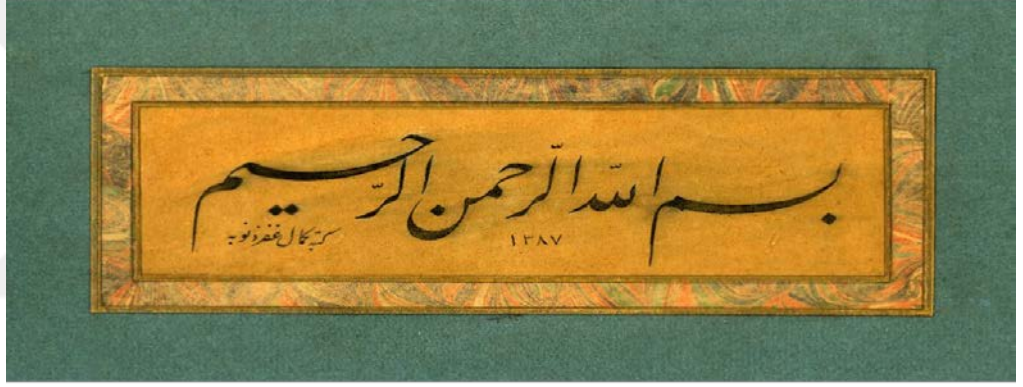 بسم الله الرحمن الرحيم
١٣٨٧
كتبه كمال غفر ذنوبه